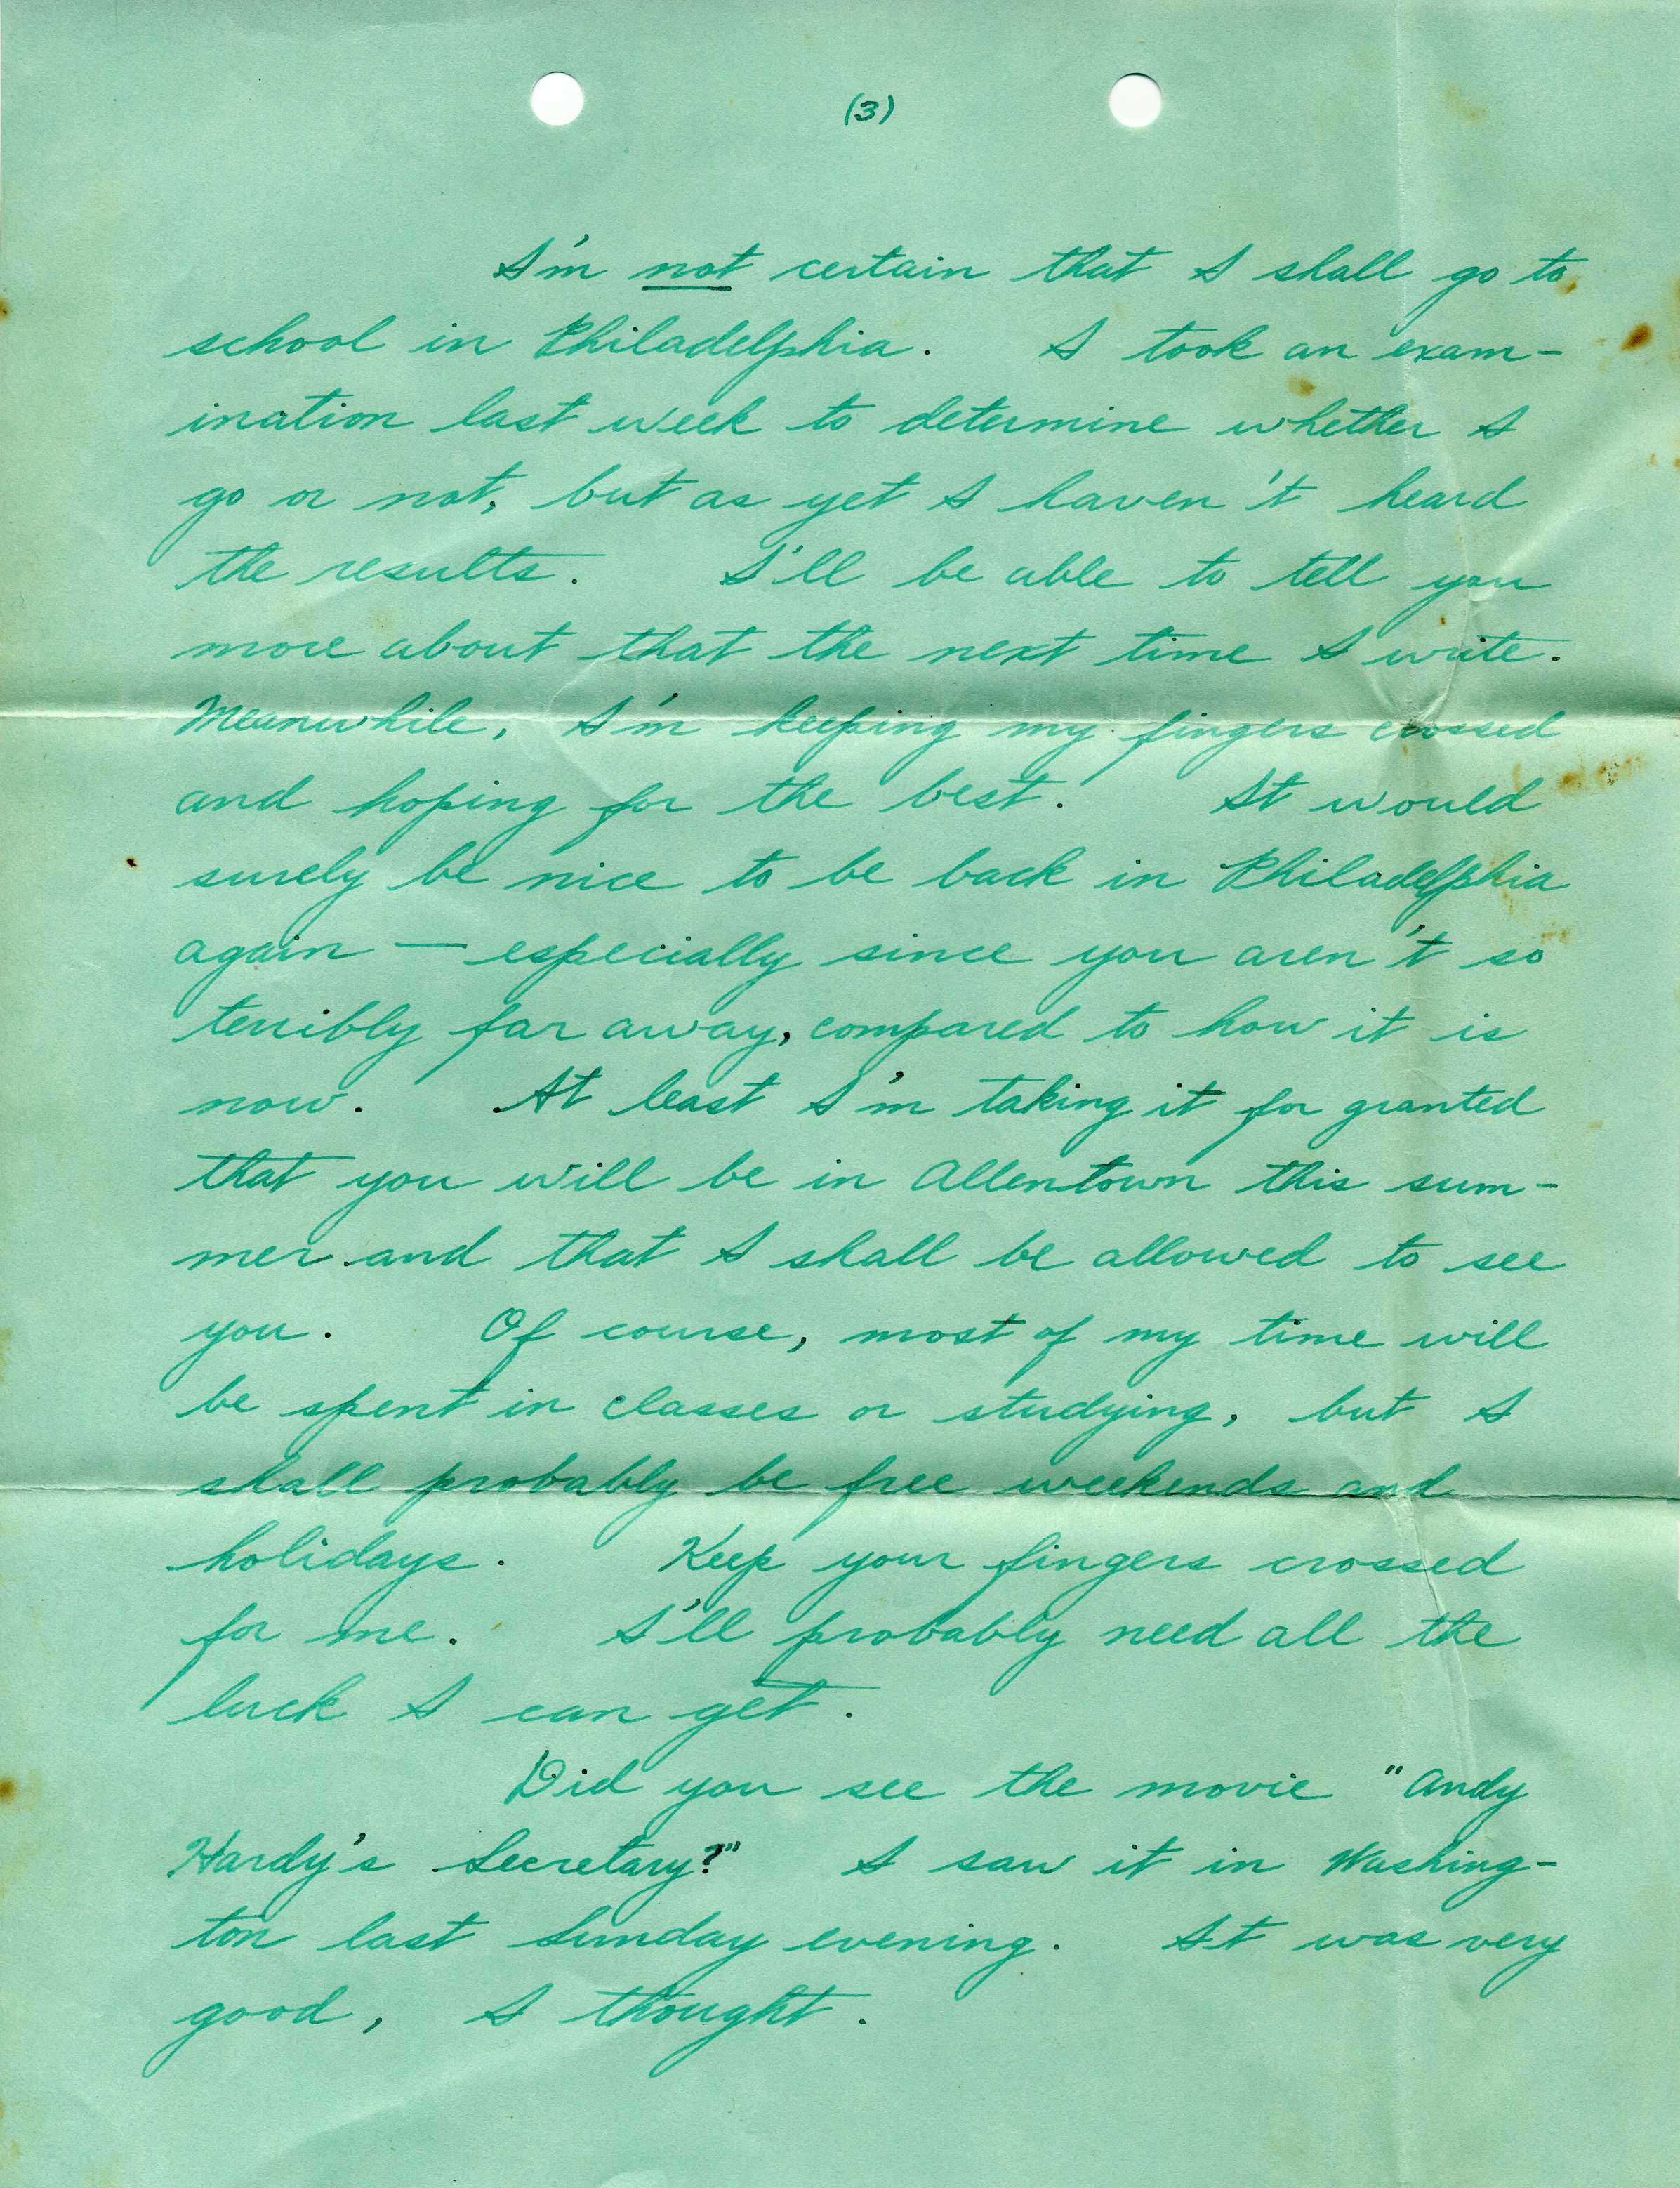 (3)
I'm not certain that I shall go to
school in Philadelphia. I took an exam-
ination last week to determine whether I
go or not, but as yet I haven't heard
the results. I'll be able to tell you
more about that the next time I write.
Meanwhile, I'm keeping my fingers crossed
and hoping for the best. It would
surely be nice to be back in Philadelphia
again — especially since you aren't so
terribly far away, compared to how it is
now. At least I'm taking it for granted
that you will be in Allentown this sum-
mer and that I shall be allowed to see
you. Of course, most of my time will
be spent in classes or studying, but I
shall probably be free weekends and
holidays. Keep your fingers crossed
for me. I'll probably need all the
luck I can get.
Did you see the movie "Andy
Hardy's Secretary?" I saw it in Washing-
ton last Sunday evening. It was very
good, I thought.